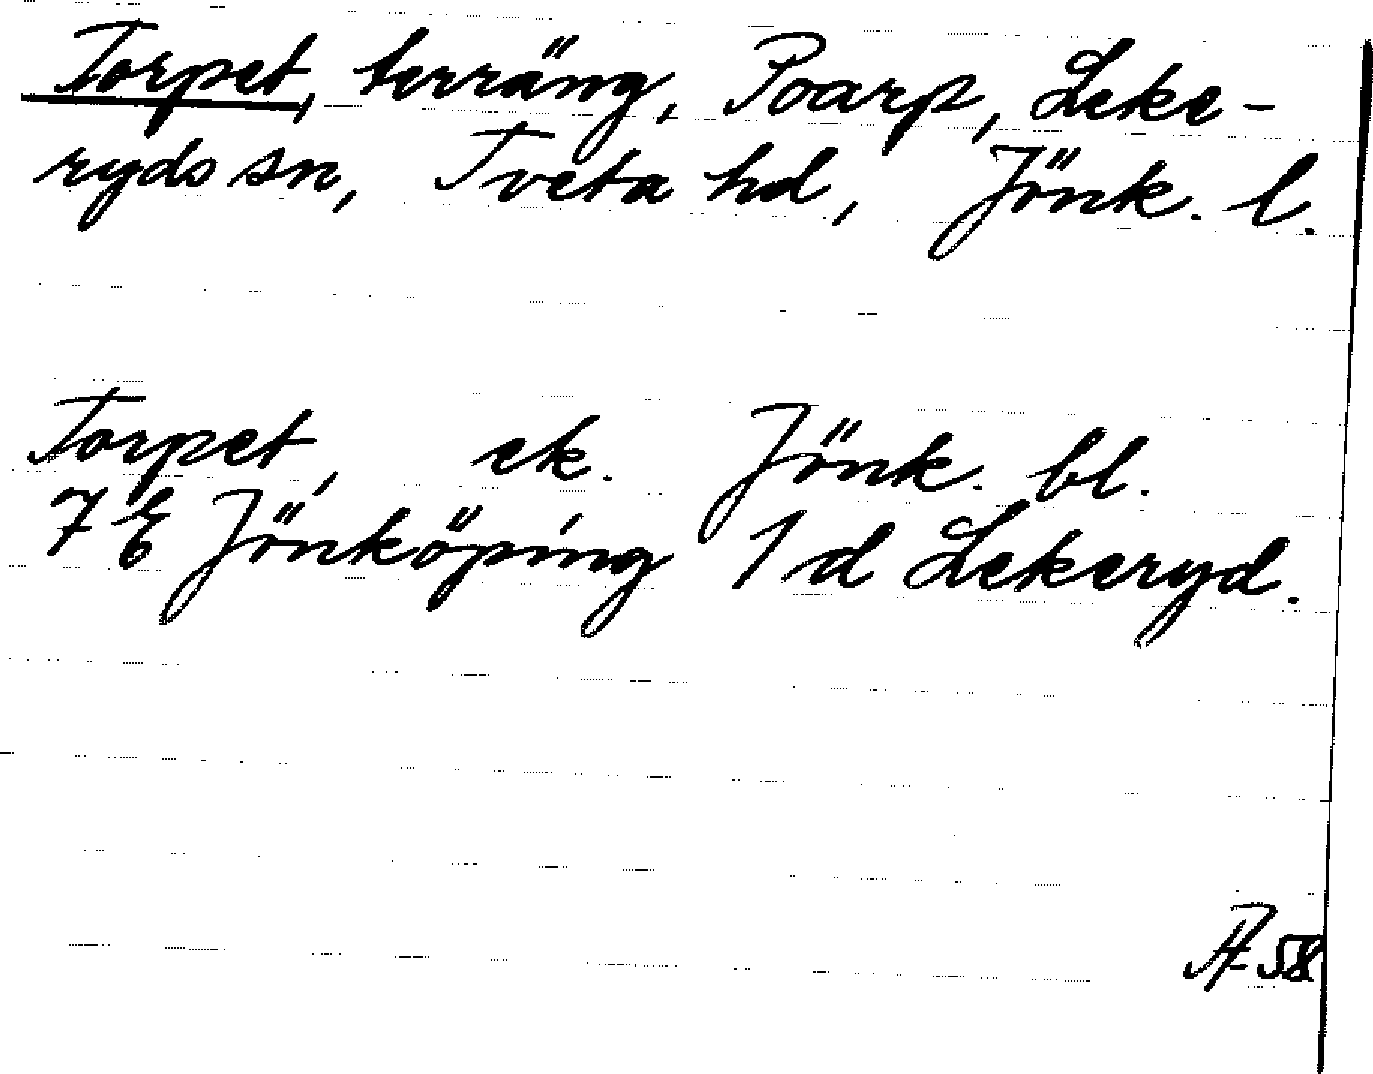 Torpet, terräng, Poarp, Leke-
ryds sn, Tveta hd, Jönk. l.
Torpet, ek. Jönk. bl.
7 E Jönköping 1 d Lekeryd.